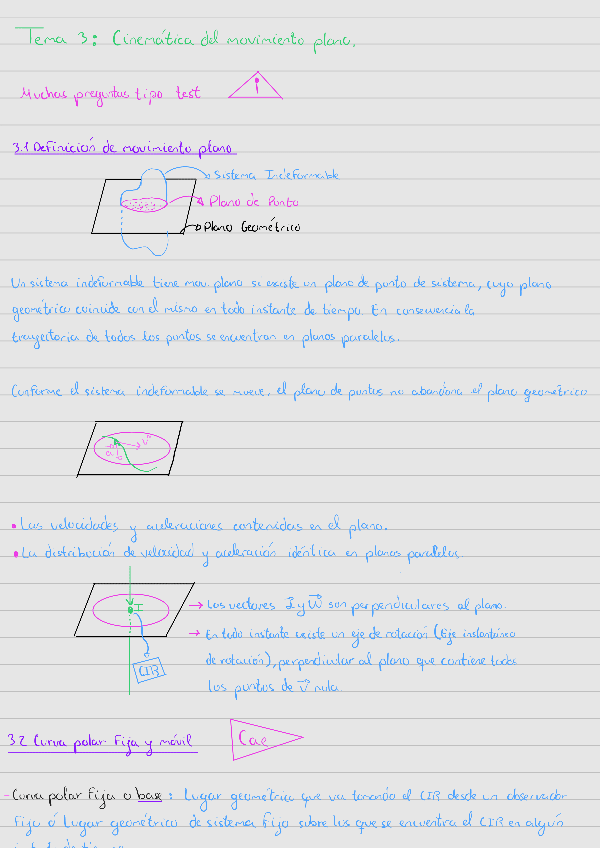 Tema 3: Cinemática del movimiento plano.
Muchas preguntas tipo test
!
3.1 Definición de movimiento plano
Sistema Indeformable
Plano de Punto
Plano Geométrico
Un sistema indeformable tiene mov. plano si existe un plano de punto de sistema, cuyo plano
geométrico coincide con el mismo en todo instante de tiempo. En consecuencia la
trayectoria de todos los puntos se encuentran en planos paralelos.
Conforme el sistema indeformable se mueve, el plano de puntos no abandona el plano geométrico
• Las velocidades y aceleraciones contenidas en el plano.
• La distribución de velocidad y aceleración idéntica en planos paralelos.
I
CIR
→ Los vectores y w⃗ son perpendiculares al plano.
→ En todo instante existe un eje de rotación (Eje instantáneo
de rotación), perpendicular al plano que contiene todos
los puntos de v⃗ nula
3.2 Curva polar Fija y móvil
Cae
- Curva polar Fija o base: Lugar geométrico que va tomando el CIR desde un observador
Fijo ó Lugar geométrico de sistema Fijo sobre los que se encuentra el CIR en algún